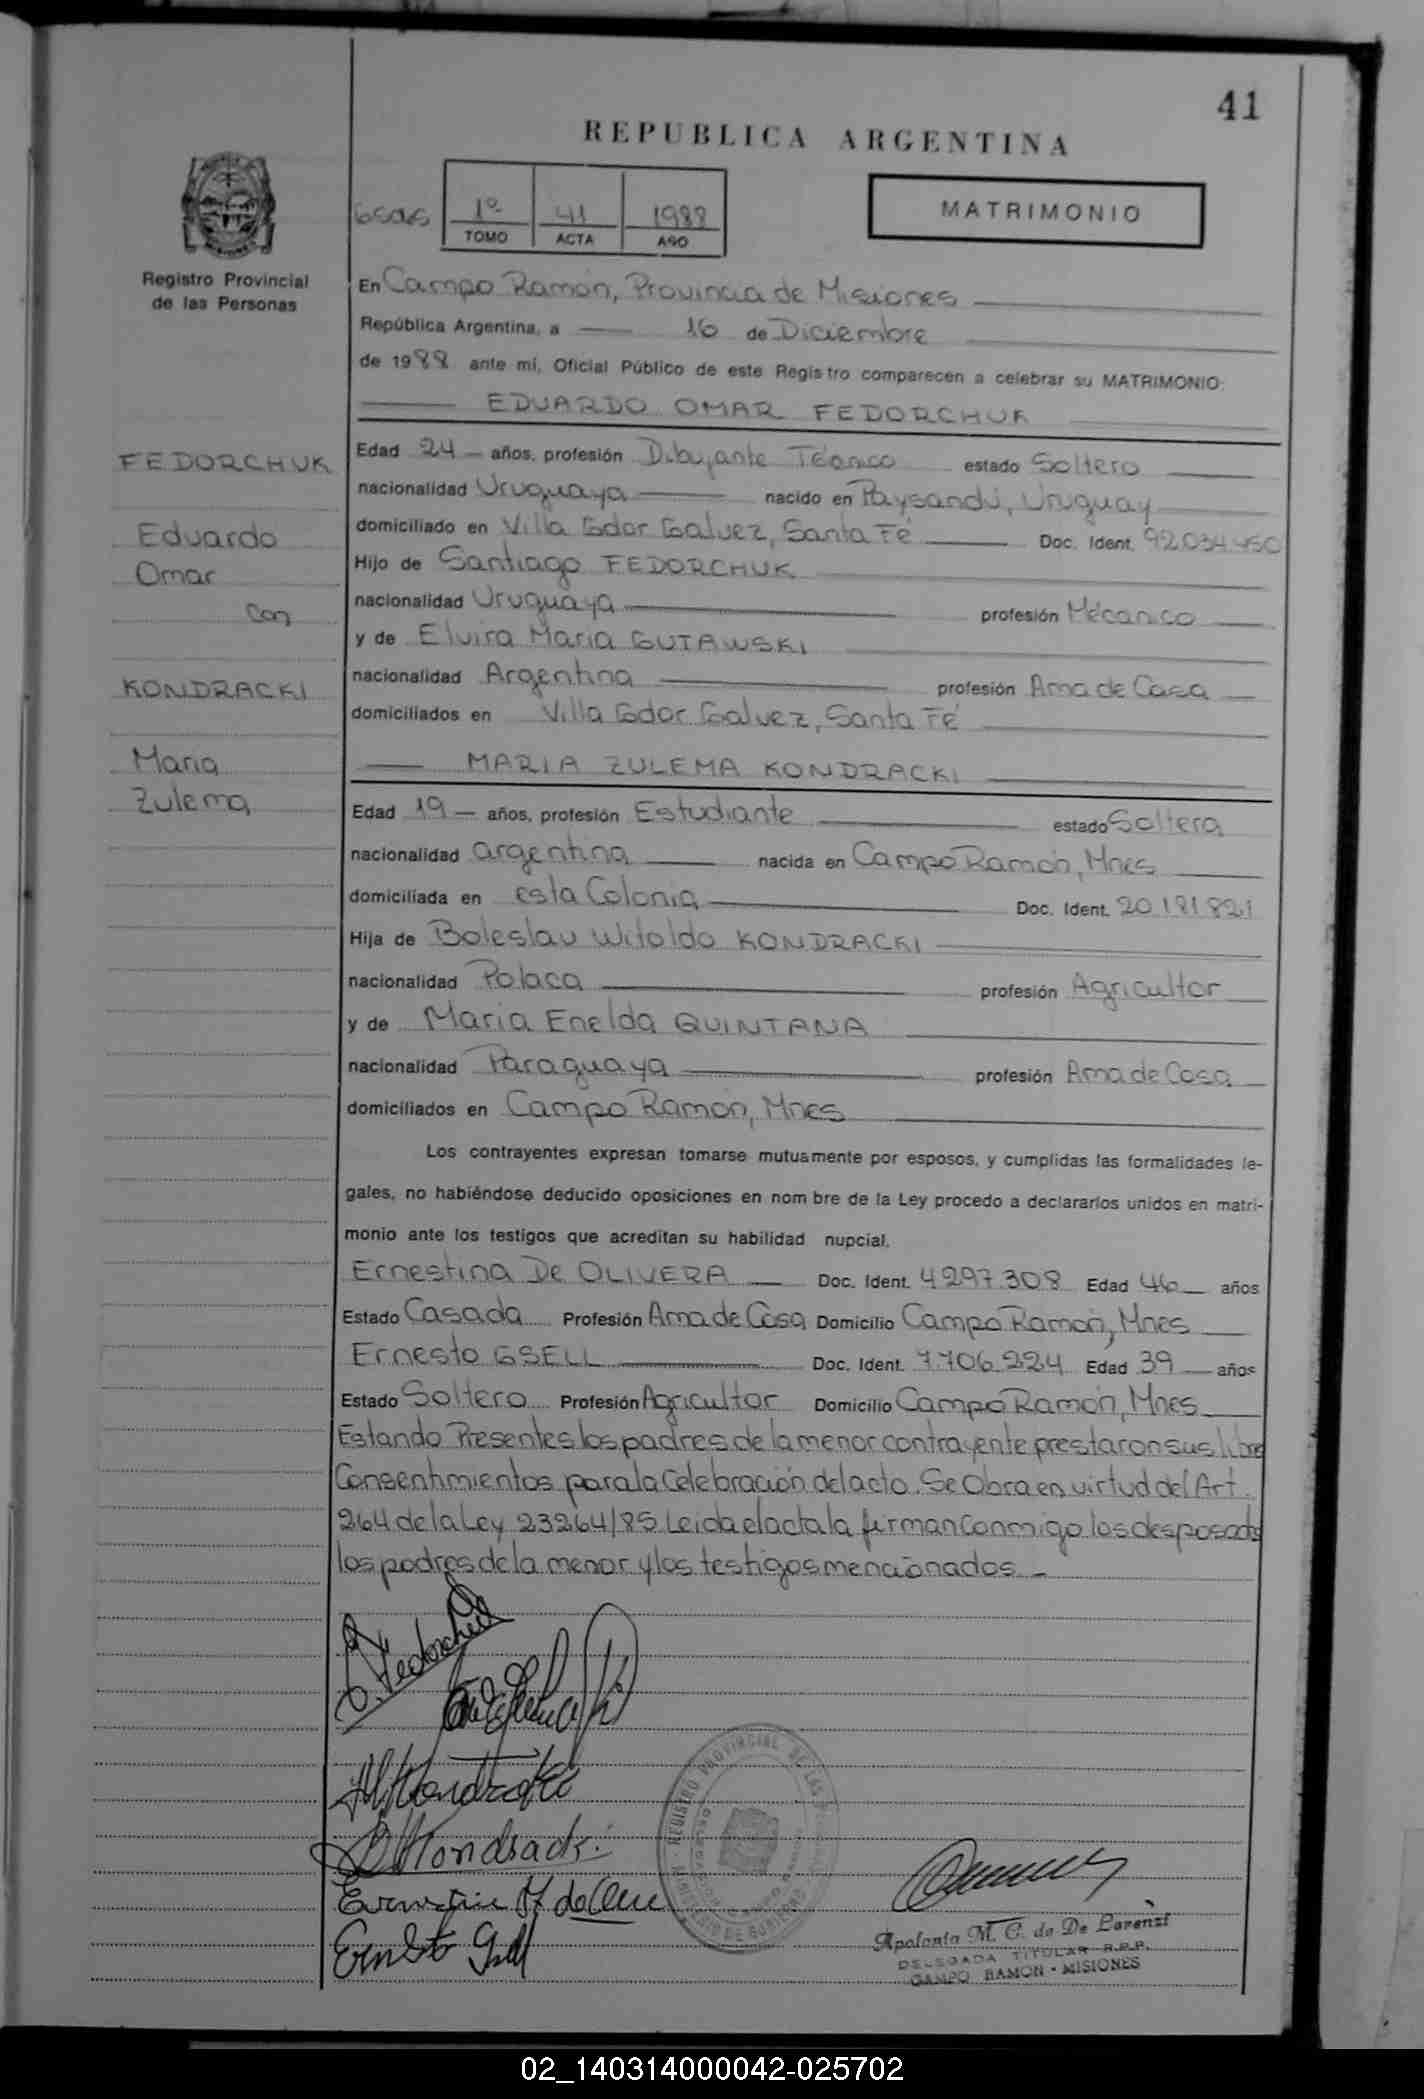 41
REPUBLICA ARGENTINA
1º 41 1988
TOMO ACTA AÑO
MATRIMONIO
Registro Provincial
de las Personas
En Campo Ramón, Provincia de Misiones
República Argentina, a 16 de Diciembre
de 1988 ante mí, Oficial Público de este Registro comparecen a celebrar su MATRIMONIO:
EDUARDO OMAR FEDORCHUK
FEDORCHUK
Eduardo
Omar
con
KONDRACKI
Maria
Zulema
Edad 24 años, profesión Dibujante Técnico estado Soltero
nacionalidad Uruguaya nacido en Paysandú, Uruguay
domiciliado en Villa Gdor Galvez, Santa Fé Doc. Ident. 92.034.450
Hijo de Santiago FEDORCHUK
nacionalidad Uruguaya profesión Mécanico
y de Elvira Maria GUTAWSKI
nacionalidad Argentina profesión Ama de Casa
domiciliados en Villa Gdor Galvez, Santa Fé
MARIA ZULEMA KONDRACKI
Edad 19 años, profesión Estudiante estado Soltera
nacionalidad argentina nacida en Campo Ramón, Mnes
domiciliada en esta Colonia Doc. Ident. 20.181.821
Hija de Boleslau Witoldo KONDRACKI
nacionalidad Polaca profesión Agricultor
y de Maria Enelda QUINTANA
nacionalidad Paraguaya profesión Ama de Casa
domiciliados en Campo Ramón, Mnes
Los contrayentes expresan tomarse mutuamente por esposos, y cumplidas las formalidades le-
gales, no habiéndose deducido oposiciones en nom bre de la Ley procedo a declararlos unidos en matri-
monio ante los testigos que acreditan su habilidad nupcial.
Ernestina De OLIVERA Doc. Ident. 4297.308 Edad 46 años
Estado Casada Profesión Ama de Casa Domicilio Campo Ramón, Mnes
Ernesto GSELL Doc. Ident. 7.706.224 Edad 39 años
Estado Soltero Profesión Agricultor Domicilio Campo Ramón, Mnes
Estando Presentes los padres de la menor contrayente prestaron sus libre
Consentimientos para la Celebración del acto. Se Obra en virtud del Art.
264 de la Ley 23264/85 Leida el acta la firman Conmigo los desposado
los padres de la menor y los testigos mencionados -
Kondracki
Ernesto Gsell
REGISTRO PROVINCIAL DE LAS PERSONAS
MINISTERIO DE GOBIERNO
Apolonia M. C. de De Lorenzi
DELEGADA TITULAR R.P.P.
CAMPO RAMON - MISIONES
02_140314000042-025702